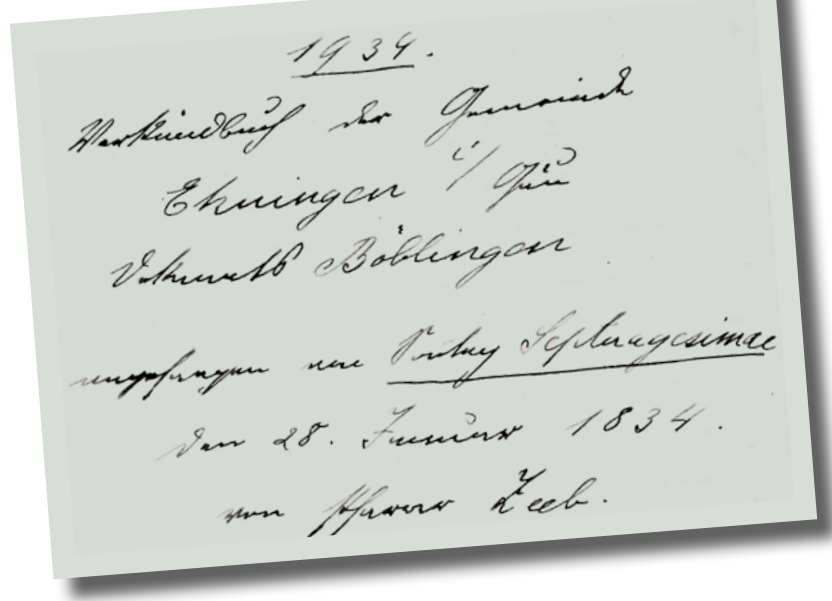 1934.
Verkündbuch der Gemeinde
Ehningen i/ Gäu
Dekanats Böblingen
angefangen am Sonntag Septuagesimae
den 28. Januar 1834.
von Pfarrer Zeeb.